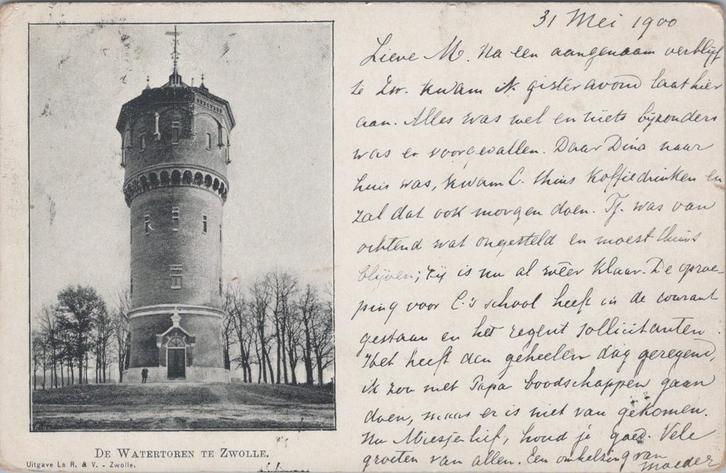 31 Mei 1900
Lieve M. Na een aangenaam verblijf
te Zw. kwam ik gisteravond laat hier
aan. Alles was wel en niets bijzonders
was er voorgevallen. Daar Dina naar
huis was, kwam C. thuis koffiedrinken en
zal dat ook morgen doen. Tj. was van
ochtend wat ongesteld en moest thuis
blijven; hij is nu al wéér klaar. De oproe
ping voor C.'s school heeft in de courant
gestaan en het regent sollicitanten.
Het heeft den geheelen dag geregend,
ik zou met Papa boodschappen gaan
doen, maar er is niet van gekomen.
Nu Miesje lief, houd je goed. Vele
groeten van allen. Een omhelzing van
moeder
DE WATERTOREN TE ZWOLLE.
Uitgave La R. & V. - Zwolle.